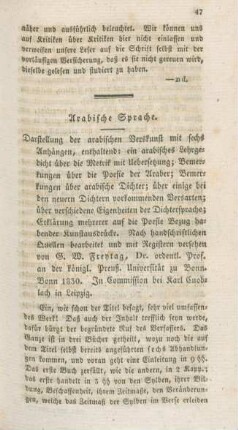 47
näher und ausführlich beleuchtet. Wir können uns
auf Kritiken über Kritiken hier nicht einlassen und
verweisen unsere Leser auf die Schrift selbst mit der
vorläufigen Versicherung, daß es sie nicht gereuen wird,
dieselbe gelesen und studiert zu haben.
—nd.
Arabische Sprache.
Darstellung der arabischen Verskunst mit sechs
Anhängen, enthaltend: ein arabisches Lehrge-
dicht über die Metrik mit Uebersetzung; Bemerk-
ungen über die Poesie der Araber; Bemerk-
ungen über arabische Dichter; über einige bei
den neuern Dichtern vorkommenden Versarten;
über verschiedene Eigenheiten der Dichtersprache;
Erklärung mehrerer auf die Poesie Bezug ha-
bender Kunstausdrücke. Nach handschriftlichen
Quellen bearbeitet und mit Registern versehen
von G. W. Freytag, Dr. ordentl. Prof.
an der königl. Preuß. Universität zu Bonn.
Bonn 1830. In Commission bei Karl Cnob-
loch in Leipzig.
Ein, wie schon der Titel besagt, sehr viel umfassen-
des Werk! Daß auch der Inhalt trefflich seyn werde,
dafür bürgt der begründete Ruf des Verfassers. Das
Ganze ist in drei Bücher getheilt, wozu noch die auf
dem Titel selbst bereits genannten sechs Abhandlun-
gen kommen, und voran geht eine Einleitung in 9 §§.
Das erste Buch zerfällt, wie die andern, in 2 Kapp.;
das erste handelt in 3 §§ von den Sylben, ihrer Bil-
dung, Beschaffenheit, ihrem Zeitmaße, den Veränderun-
gen, welche das Zeitmaß der Sylben im Verse erleiden